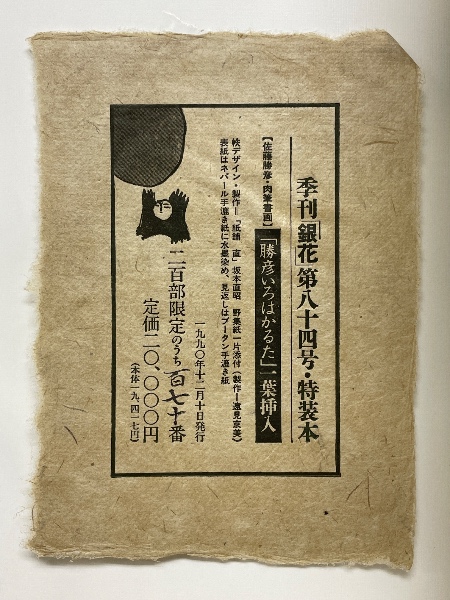 季刊「銀花」第八十四号・特装本
【佐藤勝彦・肉筆書画】「勝彦いろはかるた」一葉挿入
帙デザイン・製作―「紙舗 直」坂本直昭 野蚕紙一片添付(製作―遠見京美)
表紙はネパール手漉き紙に水墨染め、見返しはブータン手漉き紙
一九九〇年十二月十日発行
二百部限定のうち百七十番
定価二〇、〇〇〇円
(本体一九、四一七円)